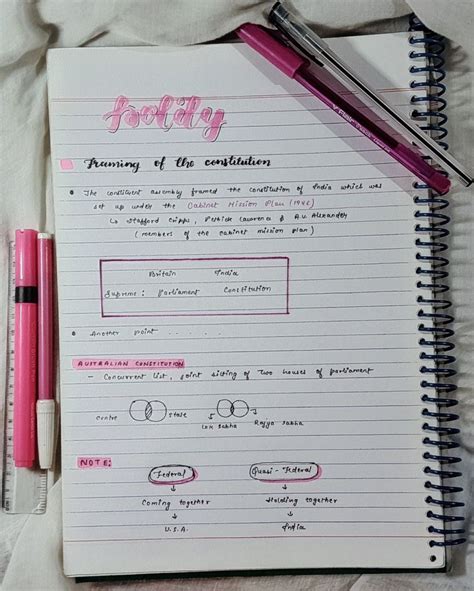 Framing of the constitution
• The constituent assembly framed the constitution of India which was
set up under the Cabinet Mission Plan (1946)
↳ Stafford Cripps, Pethick Lawrence & A.V. Alexander
(members of the cabinet mission plan)
Britain India
Supreme : Parliament Constitution
• Another point . . . . . .
AUSTRALIAN CONSTITUTION
- Concurrent list, joint sitting of two houses of parliament
Centre State Lok Sabha Rajya Sabha
NOTE:
Federal Quasi-Federal
↓ ↓
Coming together Holding together
↓ ↓
U.S.A. India